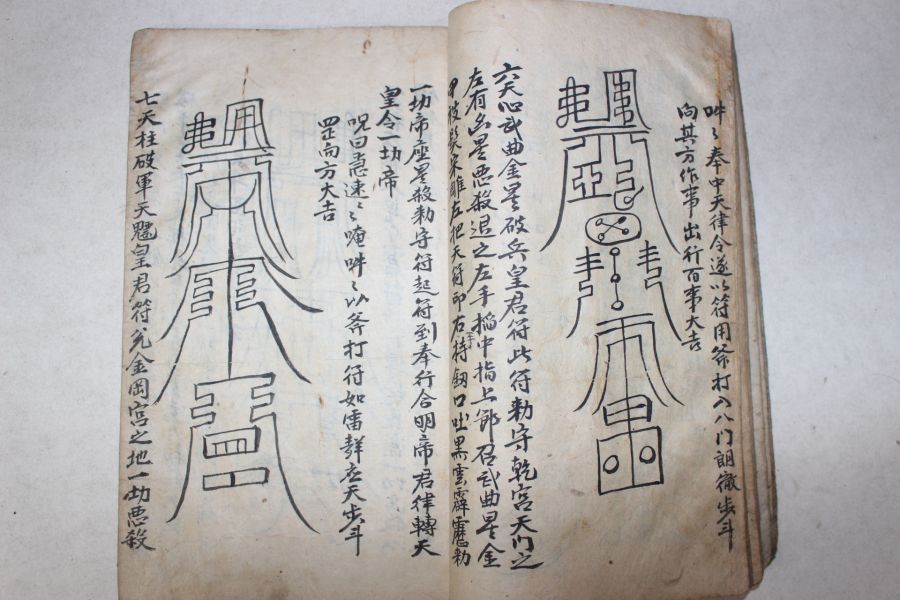 吽〻奉中天律令遂以符用斧打入八门朗徹步斗
向其方作事出行百事大吉
六天心武曲金星破兵皇君符此符勅守乾宮天门之
左有凶星悪殺退之左手搯中指上節召武曲星金
甲披髮朱雎左把天符印右手持釼口吐黒雲霹靂勅
一切帝座星殺勅守符起符到奉行合明帝君律轉天
皇令一切帝
呪曰急速〻唵吽〻以斧打符如雷聲応天步斗
罡向方大吉
七天柱破軍天魁皇君符光金岡宮之地一切悪殺